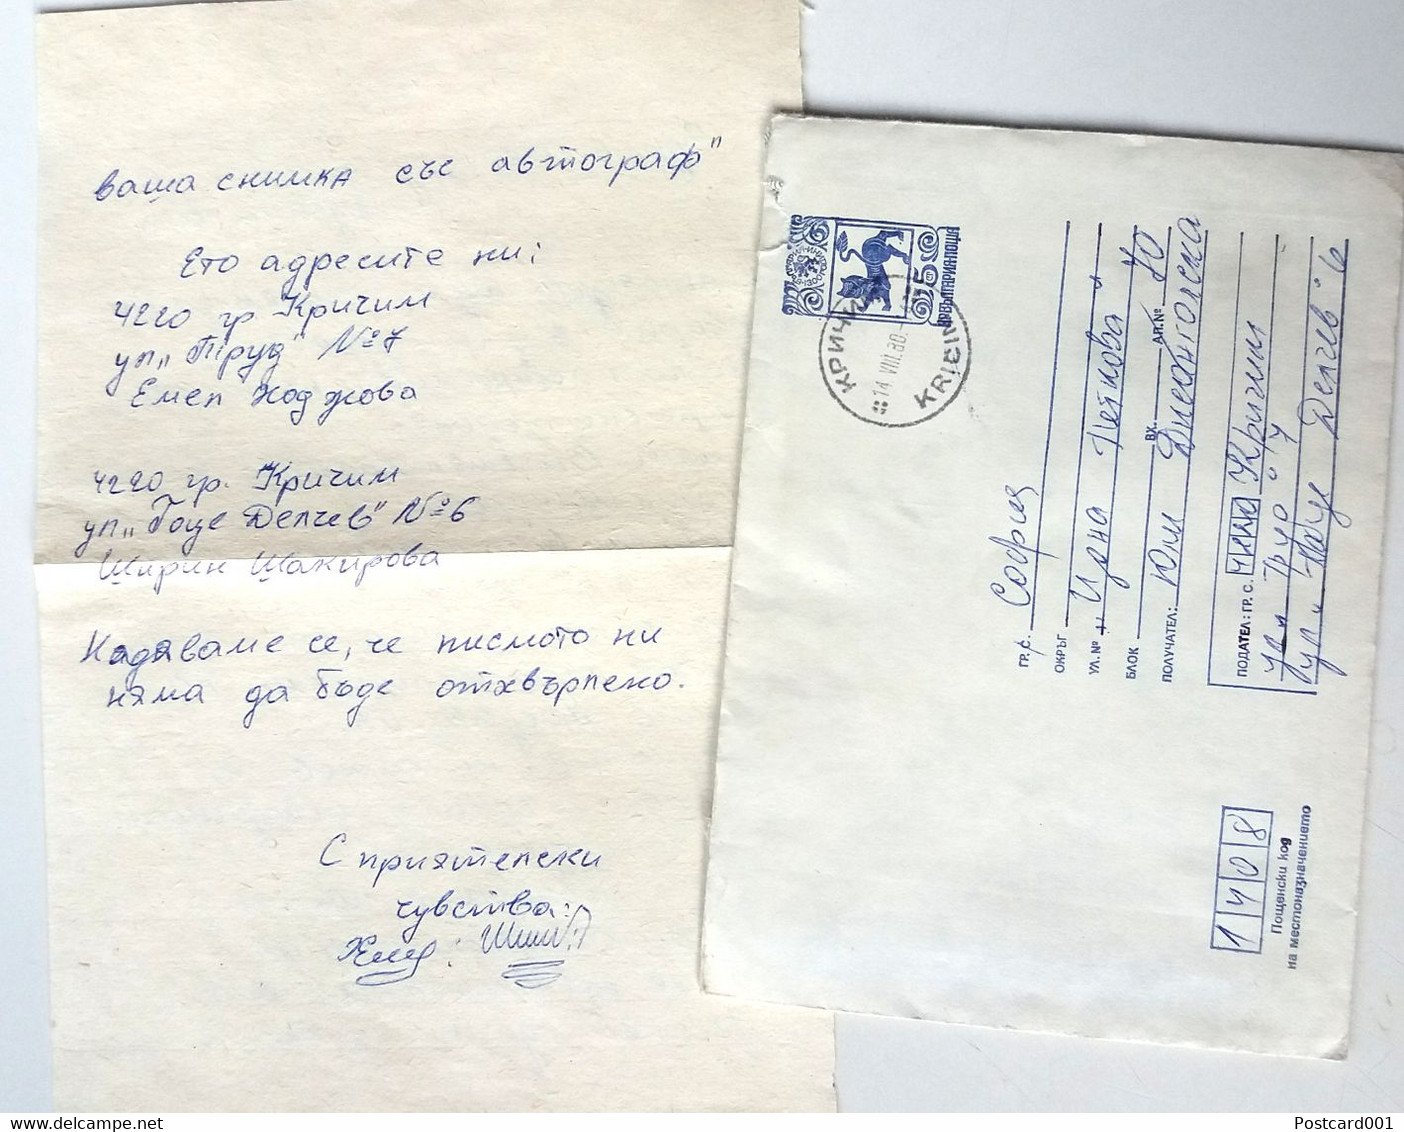 ваша снимка със автограф"
Ето адресите ни:
4220 гр Кричим
ул „Труд" №7
Емел Ходжова
4220 гр. Кричим
ул „Гоце Делчев" №6
Ширин Шакирова
Надяваме се, че писмото ни
няма да бъде отхвърлено.
С приятелски
чувства:
КРИЧИМ
14 VIII.80.
KRIČIM
5
НР БЪЛГАРИЯ·ПОЩА
ГР. С. София
ОКРЪГ
УЛ. № „Цона Петкова"
БЛОК ВХ. АП. № 40
ПОЛУЧАТЕЛ: Юли
ПОДАТЕЛ: ГР. С. 4220 Кричим
ул „Труд" 7
ул „Гоце Делчев" 6
1408
Пощенски код
на местоназначението
Postcard001